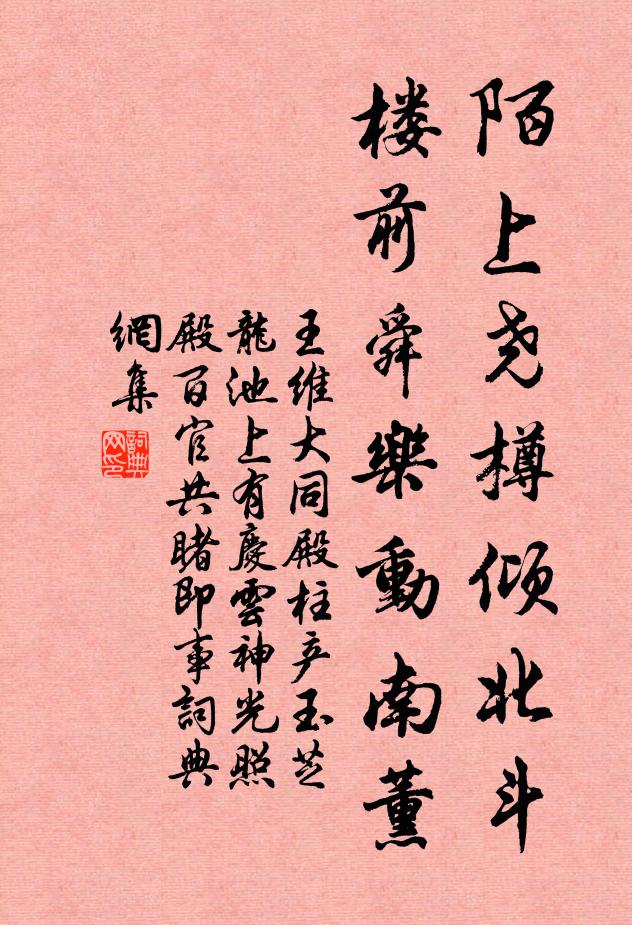 陌上尧樽倾北斗
楼前舜樂動南薰
王維大同殿柱产玉芝
龍池上有慶雲神光照
殿百官共睹即事詞典
網集
詞典网印